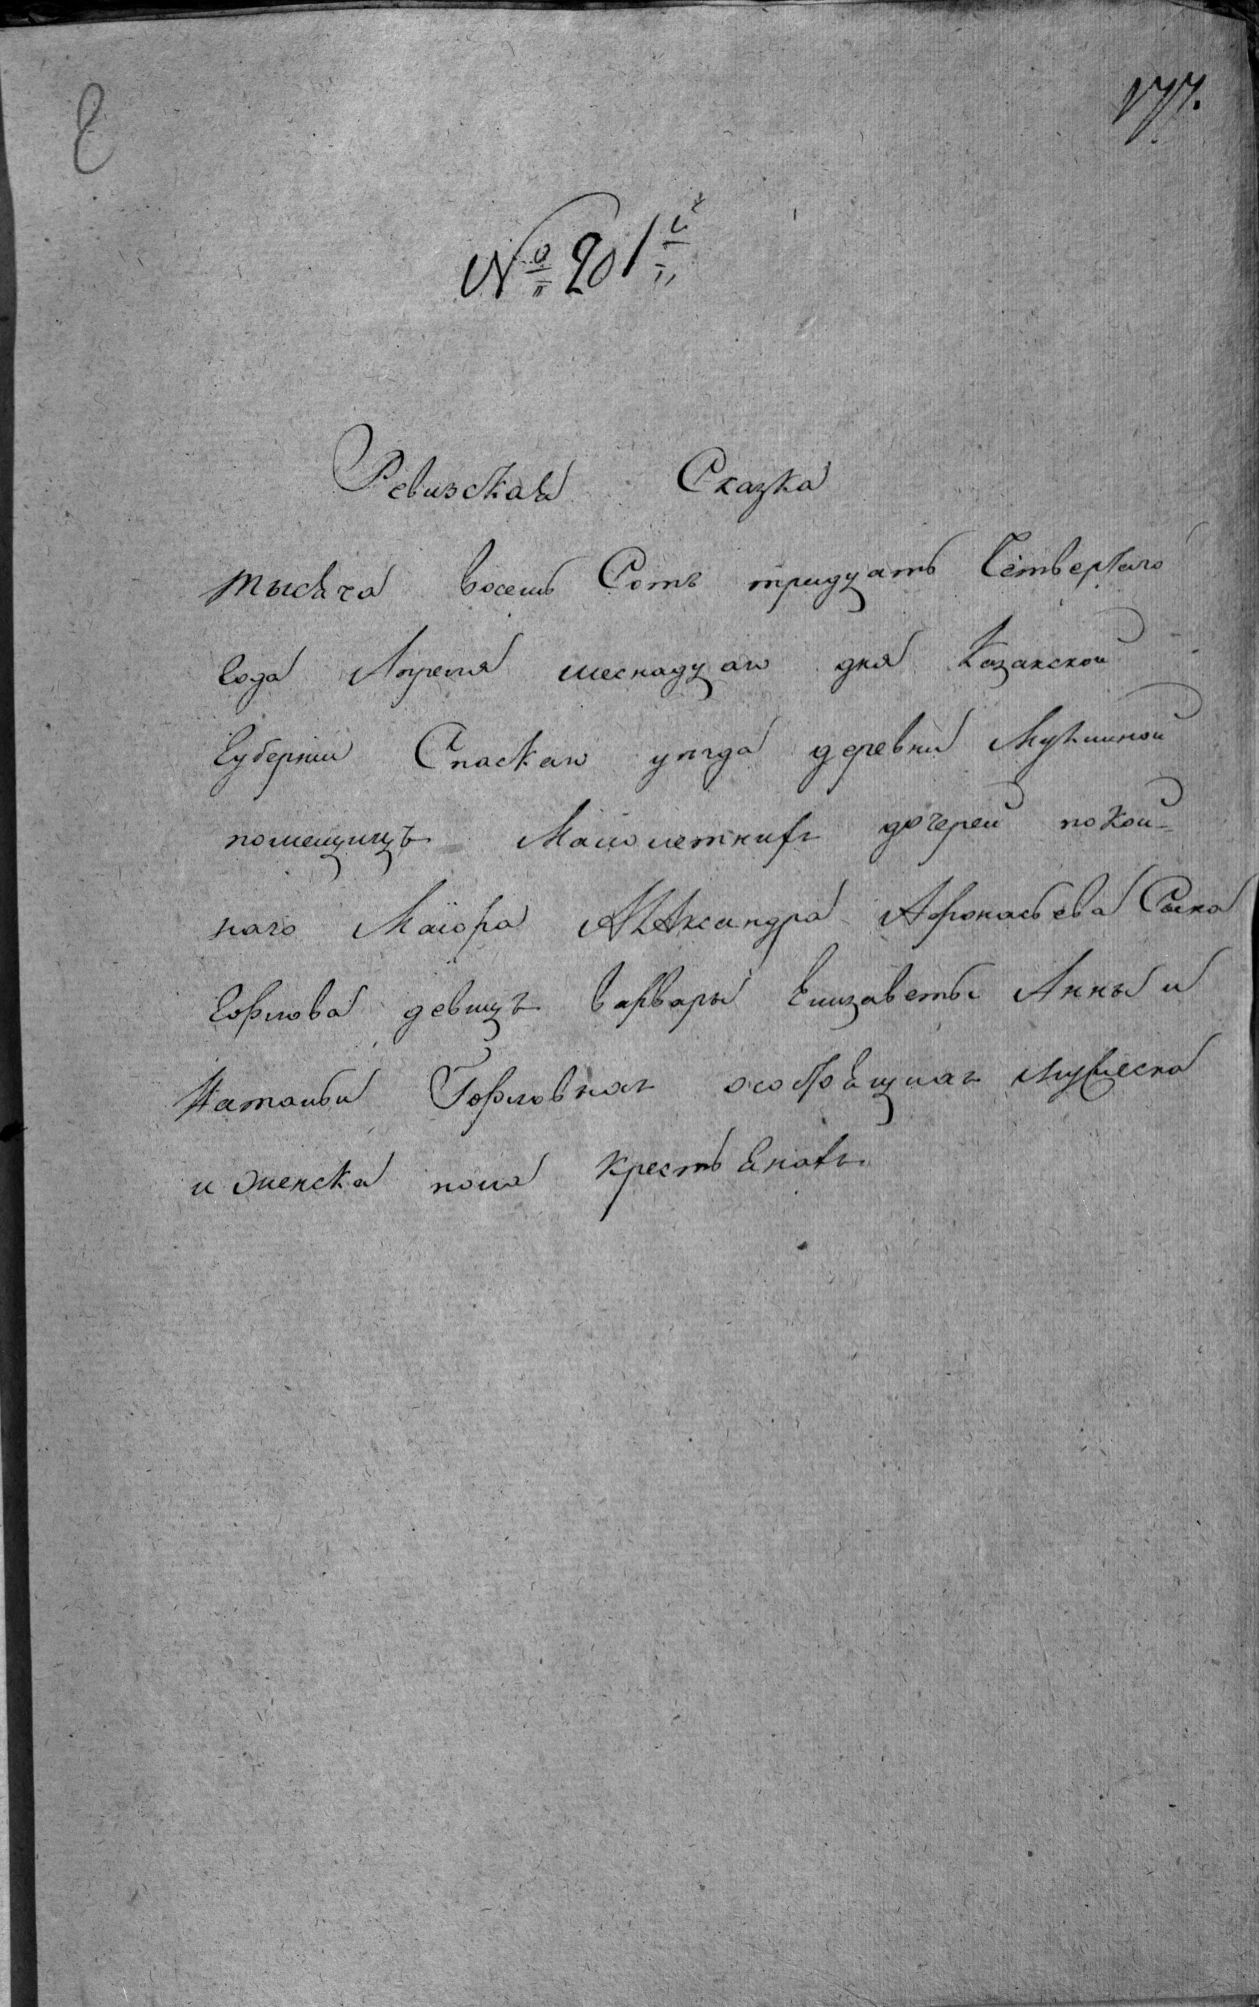 177.
№ 201й
Ревизская Сказка
тысяча восемь Сотъ тридцать Четвертаго
Года Апреля шеснадцаго дня Казанской
Губернии Спаскаго уезда деревни
помещицъ Малолетнихъ дочерей покой-
наго Маіора Александра Афонасьева Сына
Горлова девицъ Варвары Елизаветы Анны и
Натальи Горловнахъ мужеска
и женска пола крестьянахъ